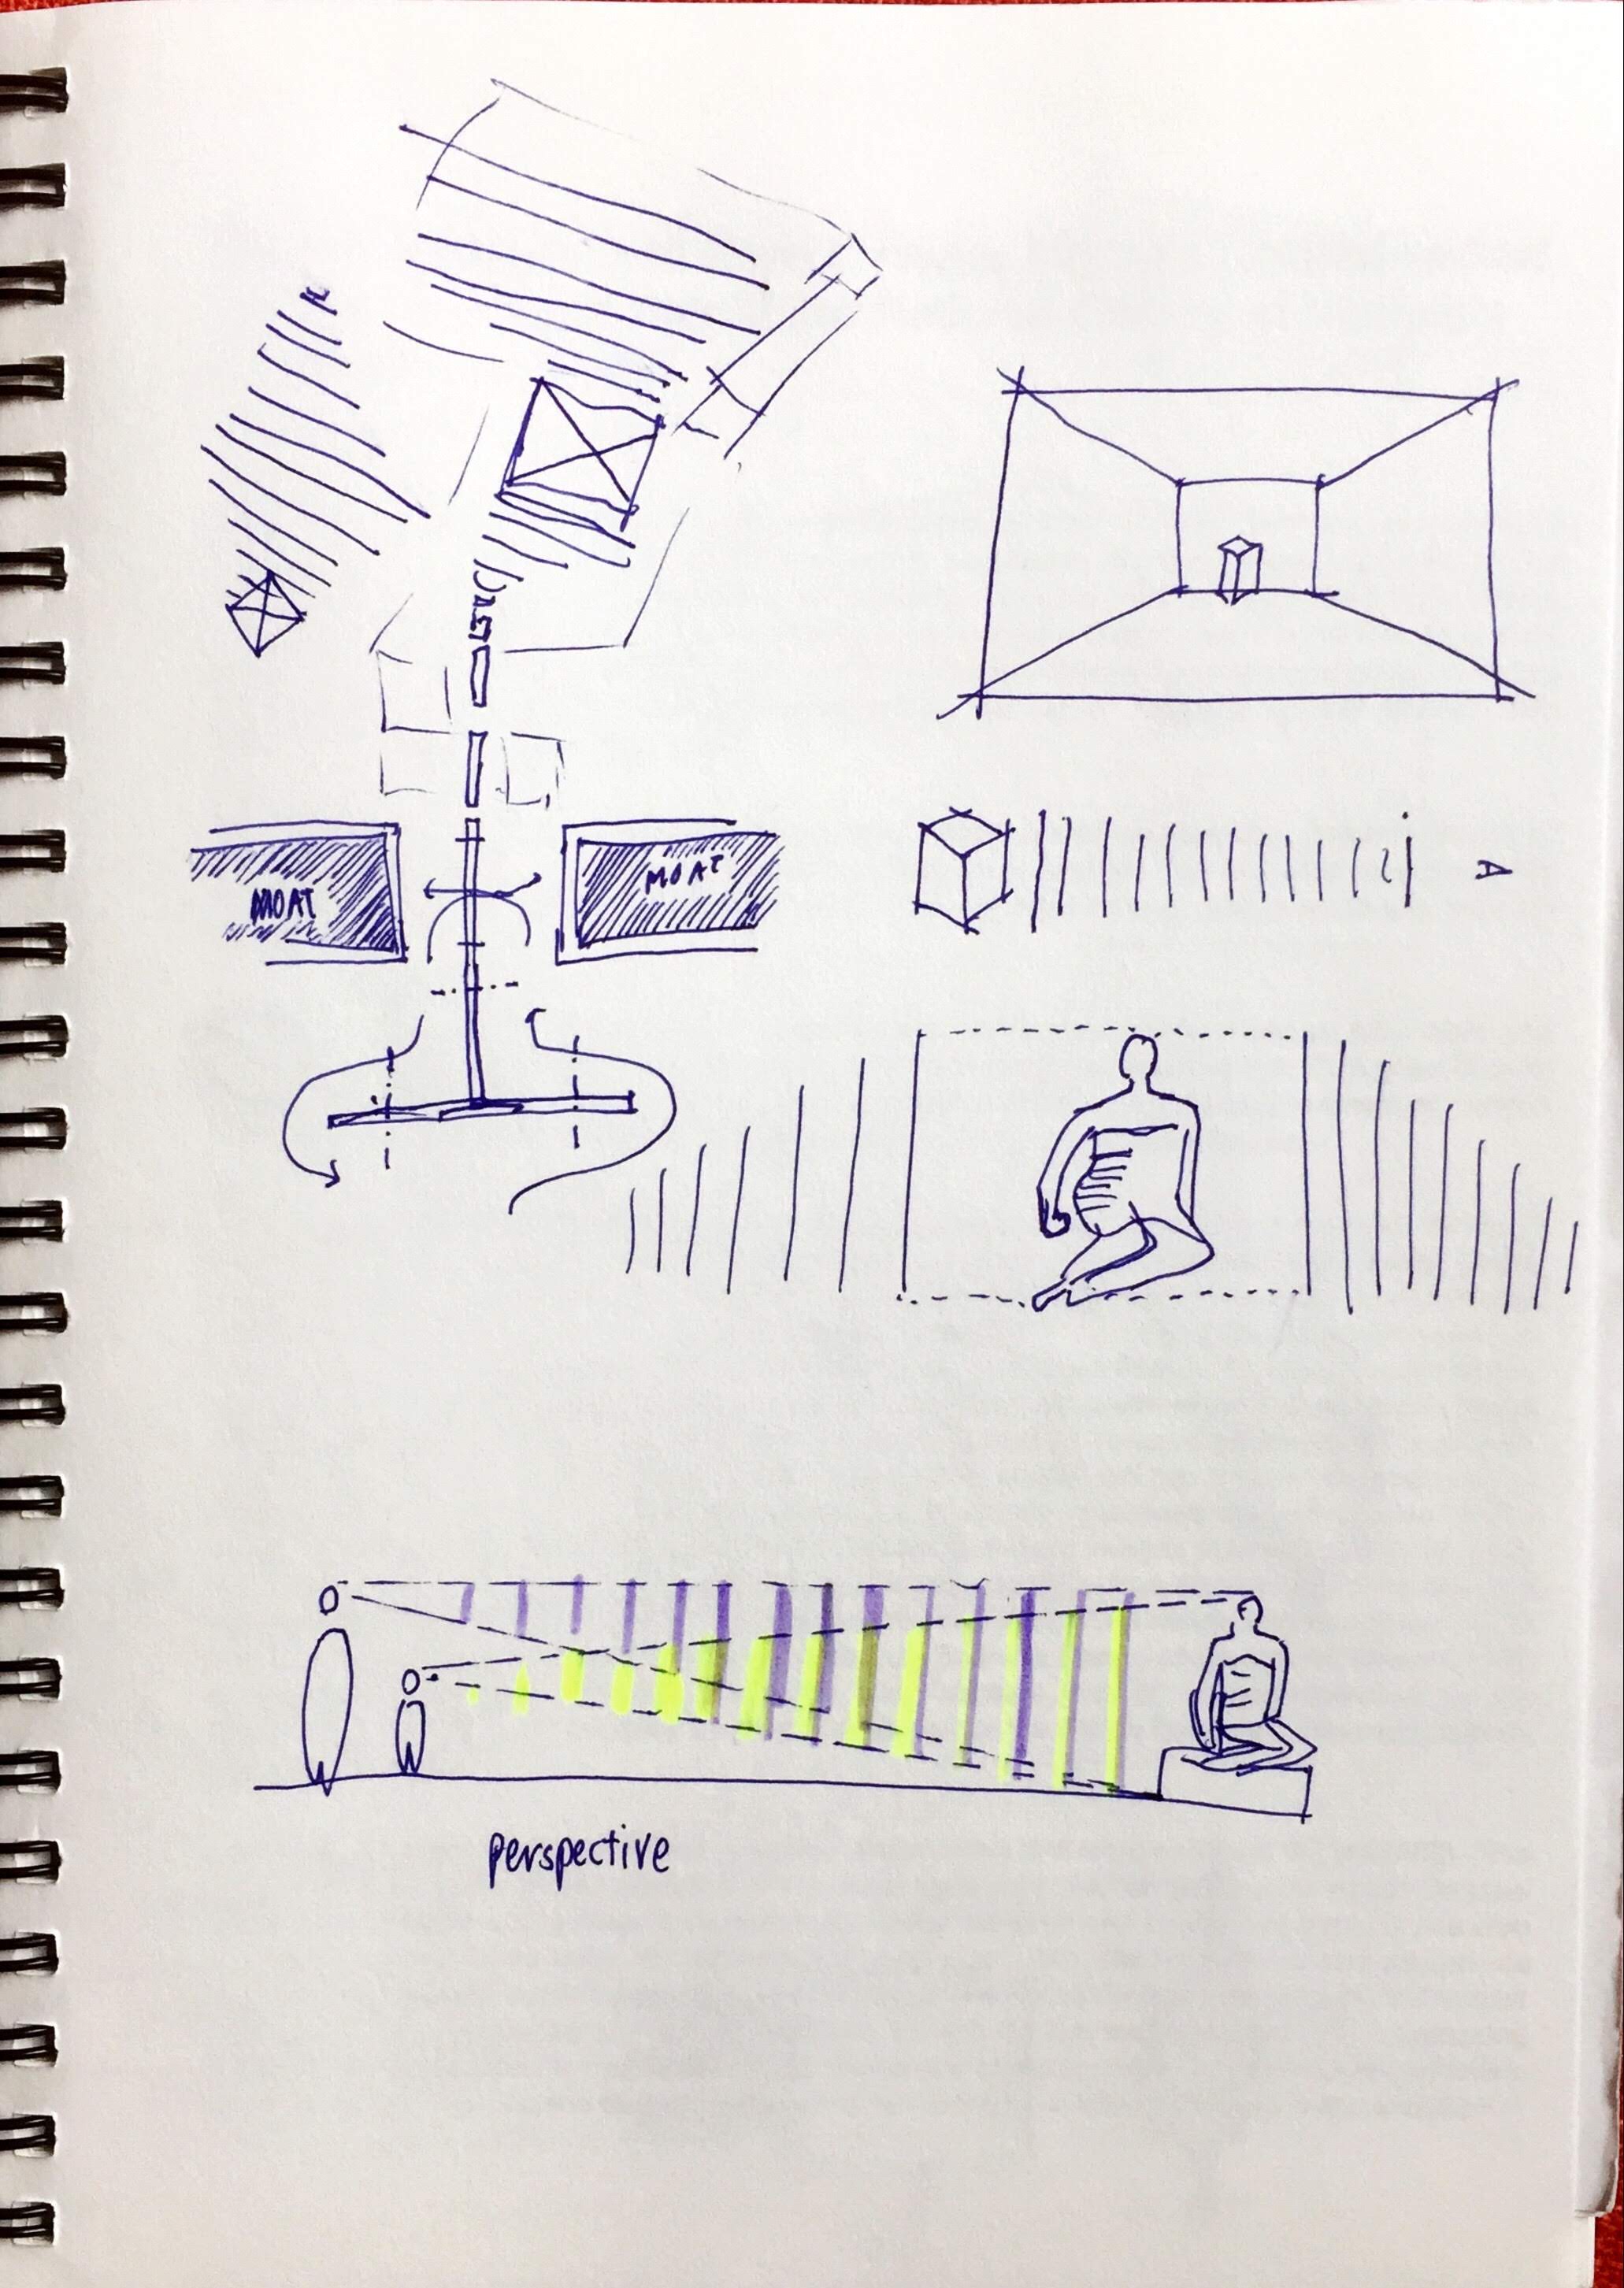 MOAT
MOAT
perspective